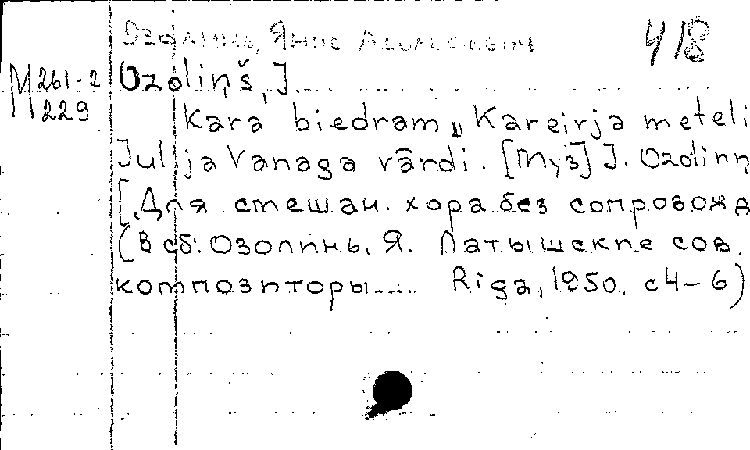 Озолинь, Янис Адольфович
418
M 261-2
229
Ozoliņš, J.
Kara biedram „Kareirja meteli
Jullja Vanaga vārdi. [Myз] J. Ozolinn
[Для смешан. хора без сопровожд
(в сб. Озолинь, Я. Латышские сов.
композиторы.... Riga, 1950. с 4-6)